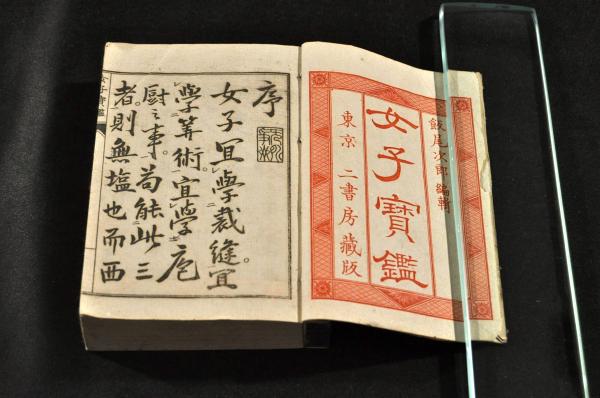 飯尾次郎 編輯
女子寶鑑
東京 二書房藏版
序
女子宜學裁縫宜
學筭術宜學庖
厨之事苟能此三
者則無塩也而西
女子寶鑑